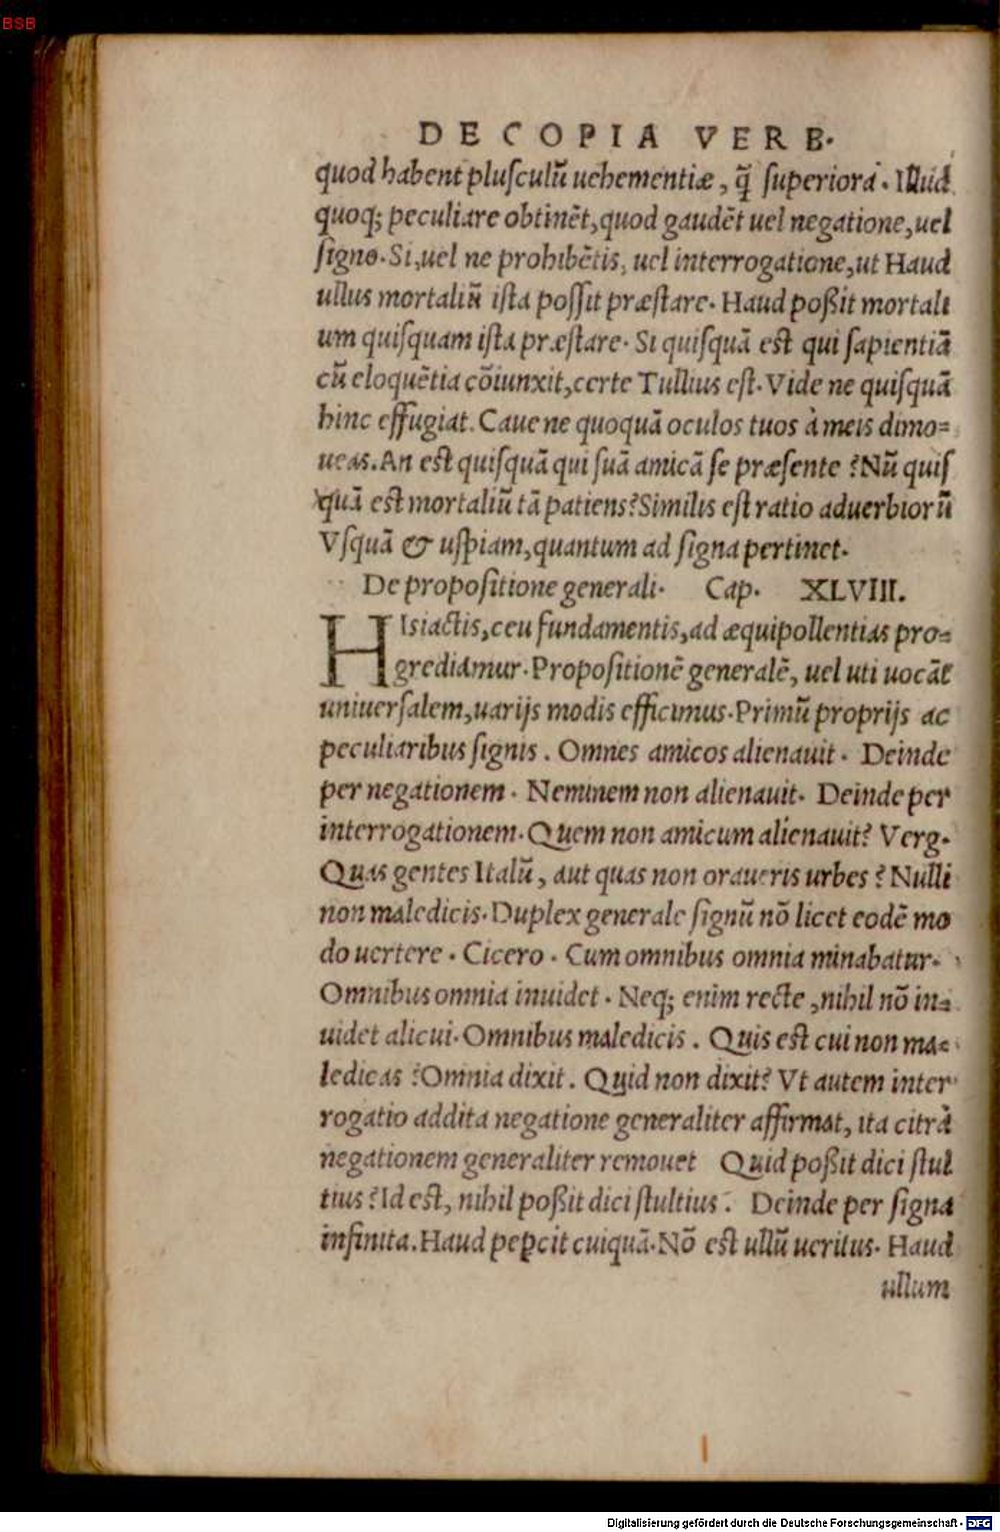 BSB
DE COPIA VERB.
quod habent plusculũ uehementiæ, q̃ superiora. Illud
quoq; peculiare obtinẽt, quod gaudẽt uel negatione, uel
signo. Si, uel ne prohibẽtis, uel interrogatione, ut Haud
ullus mortaliũ ista possit præstare. Haud poßit mortali
um quisquam ista præstare. Si quisquã est qui sapientiã
cũ eloquẽtia cõiunxit, certe Tullius est. Vide ne quisquã
hinc effugiat. Caue ne quoquã oculos tuos à meis dimo=
ueas. An est quisquã qui suã amicã se præsente? Nũ quis
quã est mortaliũ tã patiens? Similis est ratio aduerbiorũ
Vsquã & uspiam, quantum ad signa pertinet.
De propositione generali. Cap. XLVIII.
HIs iactis, ceu fundamentis, ad æquipollentias pro=
grediamur. Propositionẽ generalẽ, uel uti uocãt
uniuersalem, uarijs modis efficimus. Primũ proprijs ac
peculiaribus signis. Omnes amicos alienauit. Deinde
per negationem. Neminem non alienauit. Deinde per
interrogationem. Quem non amicum alienauit? Verg.
Quas gentes Italũ, aut quas non oraueris urbes? Nulli
non maledicis. Duplex generale signũ nõ licet eodẽ mo
do uertere. Cicero. Cum omnibus omnia minabatur.
Omnibus omnia inuidet. Neq; enim recte, nihil nõ in=
uidet alicui. Omnibus maledicis. Quis est cui non ma=
ledicas? Omnia dixit. Quid non dixit? Vt autem inter
rogatio addita negatione generaliter affirmat, ita citrà
negationem generaliter remouet Quid poßit dici stul
tius? Id est, nihil poßit dici stultius. Deinde per signa
infinita. Haud pepcit cuiquã. Nõ est ullũ ueritus. Haud
ullum
Digitalisierung gefördert durch die Deutsche Forschungsgemeinschaft - DFG